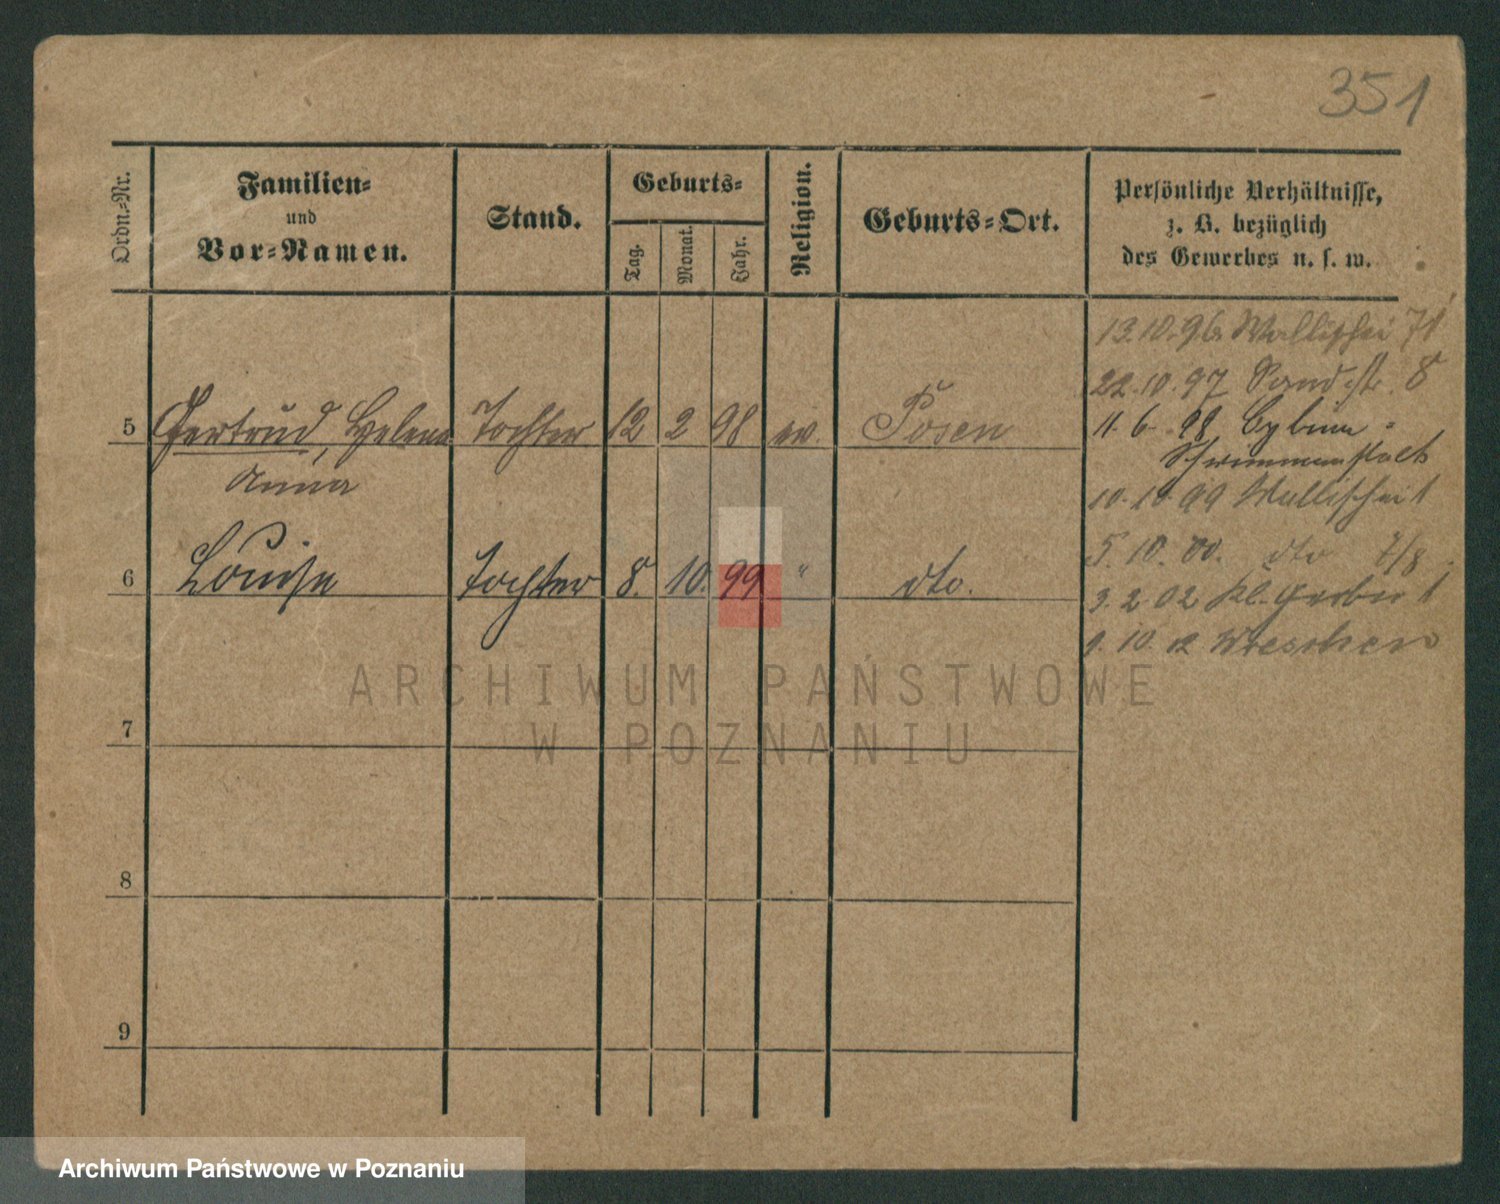 351
Ordn.-Nr.
Familien-
und
Vor-Namen.
Stand.
Geburts-
Tag.
Monat.
Jahr.
Religion.
Geburts-Ort.
Persönliche Verhältnisse,
z. B. bezüglich
des Gewerbes u. s. w.
13.10.96 Wallischei 71
22.10.97 Sandstr. 8
5 Gertrud, Helene Tochter 12 2 98 ev. Posen
Anna
11. 6. 98 Cybina-
Schwimmanstalt
10.10.99 Wallischei 1
6 Louise Tochter 8. 10. 99 " dto.
5. 10. 00. dto 7/8.
3. 2. 02 Kl. Gerber 1
9. 10. 02 Wreschen
7
8
9
ARCHIWUM PAŃSTWOWE
W POZNANIU
Archiwum Państwowe w Poznaniu